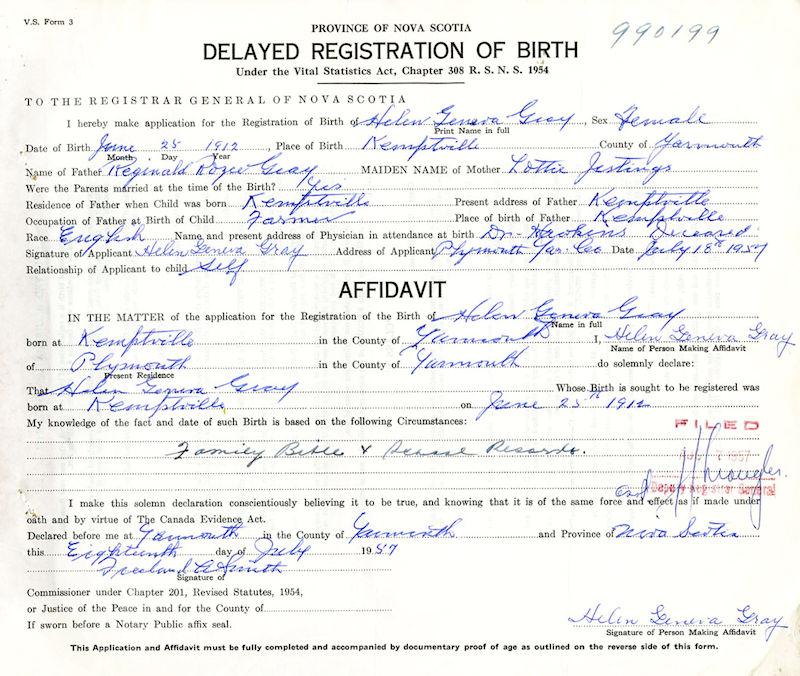 V.S. Form 3
990199
PROVINCE OF NOVA SCOTIA
DELAYED REGISTRATION OF BIRTH
Under the Vital Statistics Act, Chapter 308 R. S. N. S. 1954
TO THE REGISTRAR GENERAL OF NOVA SCOTIA
I hereby make application for the Registration of Birth of Helen Geneva Gray, Sex Female
Print Name in full
Date of Birth June 25 1912, Place of Birth Kemptville County of Yarmouth
Month Day Year
Name of Father Reginald Gray MAIDEN NAME of Mother Lottie
Were the Parents married at the time of the Birth? Yes
Residence of Father when Child was born Kemptville Present address of Father Kemptville
Occupation of Father at Birth of Child Farmer Place of birth of Father Kemptville
Race English Name and present address of Physician in attendance at birth Dr. Hawkins Deceased
Signature of Applicant Helen Geneva Gray Address of Applicant Plymouth Yar. Co Date July 18th 1957
Relationship of Applicant to child Self
AFFIDAVIT
IN THE MATTER of the application for the Registration of the Birth of Helen Geneva Gray
Name in full
born at Kemptville in the County of Yarmouth I, Helen Geneva Gray
Name of Person Making Affidavit
of Plymouth in the County of Yarmouth do solemnly declare:
Present Residence
That Helen Geneva Gray Whose Birth is sought to be registered was
born at Kemptville on June 25th 1912
My knowledge of the fact and date of such Birth is based on the following Circumstances:
FILED
Family Bible & Records.
Deputy Registrar General
I make this solemn declaration conscientiously believing it to be true, and knowing that it is of the same force and effect as if made under
oath and by virtue of The Canada Evidence Act.
Declared before me at Yarmouth in the County of Yarmouth and Province of Nova Scotia
this Eighteenth day of July 1957
Freeland A Smith
Signature of
Commissioner under Chapter 201, Revised Statutes, 1954,
or Justice of the Peace in and for the County of
If sworn before a Notary Public affix seal.
Helen Geneva Gray
Signature of Person Making Affidavit
This Application and Affidavit must be fully completed and accompanied by documentary proof of age as outlined on the reverse side of this form.